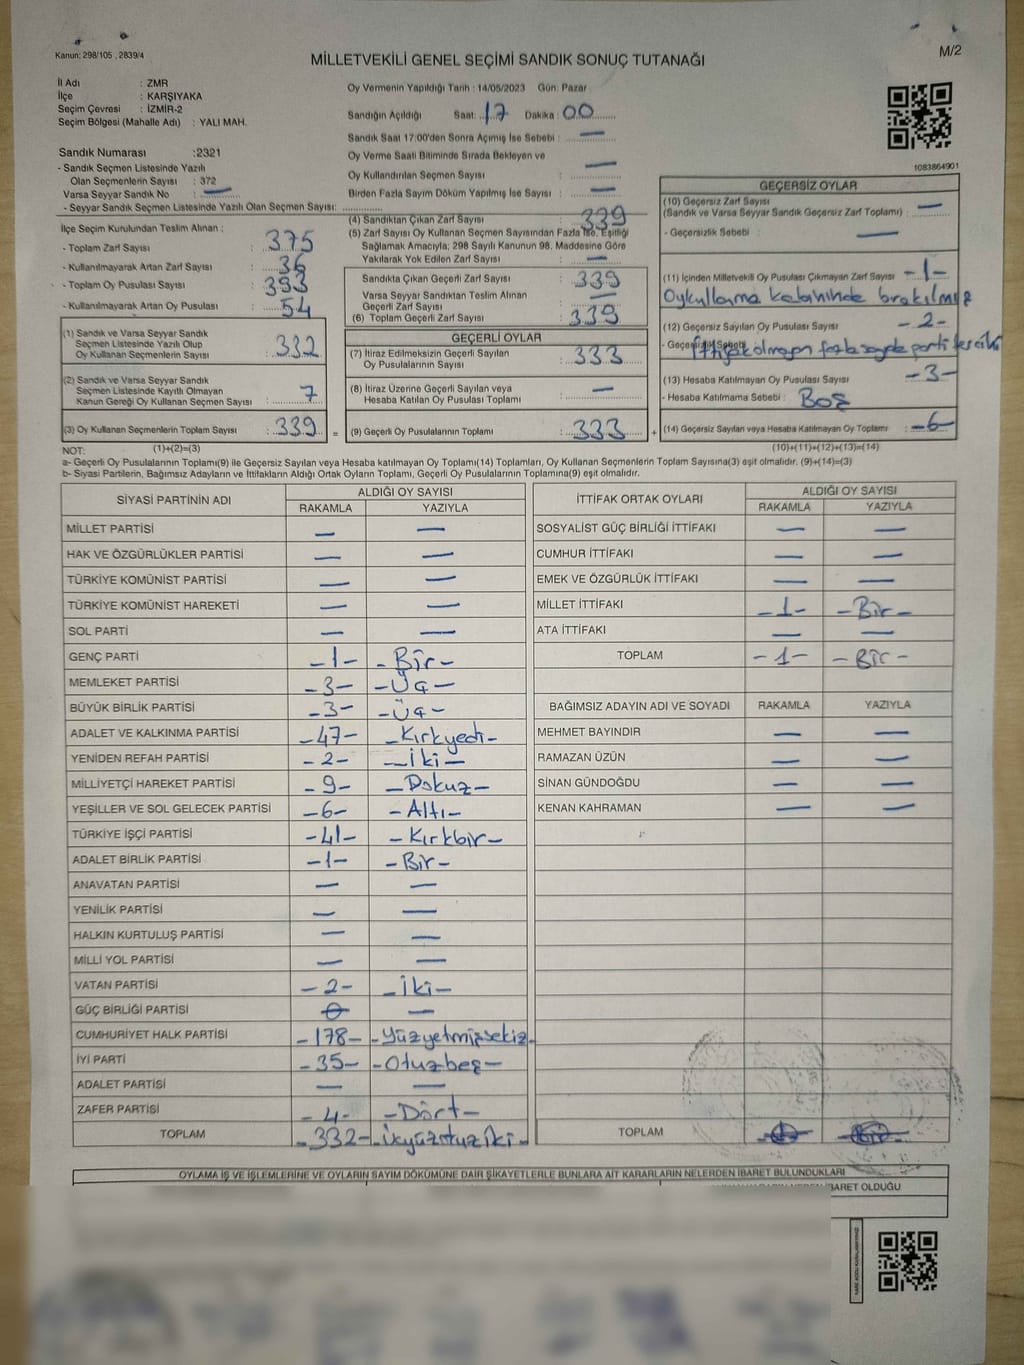 Kanun: 298/105 , 2839/4
MİLLETVEKİLİ GENEL SEÇİMİ SANDIK SONUÇ TUTANAĞI
M/2
İl Adı : ZMR
İlçe : KARŞIYAKA
Seçim Çevresi : İZMİR-2
Seçim Bölgesi (Mahalle Adı) : YALI MAH.
Sandık Numarası :2321
- Sandık Seçmen Listesinde Yazılı
Olan Seçmenlerin Sayısı : 372
Varsa Seyyar Sandık No : —
- Seyyar Sandık Seçmen Listesinde Yazılı Olan Seçmen Sayısı:
Oy Vermenin Yapıldığı Tarih : 14/05/2023 Gün: Pazar
Sandığın Açıldığı Saat: 17 Dakika : 00
Sandık Saat 17:00'den Sonra Açımış İse Sebebi : —
Oy Verme Saati Bitiminde Sırada Bekleyen ve
Oy Kullandırılan Seçmen Sayısı : —
Birden Fazla Sayım Döküm Yapılmış İse Sayısı : —
1083864901
İlçe Seçim Kurulundan Teslim Alınan :
- Toplam Zarf Sayısı : 375
- Kullanılmayarak Artan Zarf Sayısı : 36
- Toplam Oy Pusulası Sayısı : 393
- Kullanılmayarak Artan Oy Pusulası : 54
(1) Sandık ve Varsa Seyyar Sandık
Seçmen Listesinde Yazılı Olup
Oy Kullanan Seçmenlerin Sayısı : 332
(2) Sandık ve Varsa Seyyar Sandık
Seçmen Listesinde Kayıtlı Olmayan
Kanun Gereği Oy Kullanan Seçmen Sayısı : 7
(3) Oy Kullanan Seçmenlerin Toplam Sayısı : 339 =
(4) Sandıktan Çıkan Zarf Sayısı : 339
(5) Zarf Sayısı Oy Kullanan Seçmen Sayısından Fazla İse, Eşitliği
Sağlamak Amacıyla; 298 Sayılı Kanunun 98. Maddesine Göre
Yakılarak Yok Edilen Zarf Sayısı : —
Sandıkta Çıkan Geçerli Zarf Sayısı : 339
Varsa Seyyar Sandıktan Teslim Alınan
Geçerli Zarf Sayısı : —
(6) Toplam Geçerli Zarf Sayısı : 339
GEÇERLİ OYLAR
(7) İtiraz Edilmeksizin Geçerli Sayılan
Oy Pusulalarının Sayısı : 333
(8) İtiraz Üzerine Geçerli Sayılan veya
Hesaba Katılan Oy Pusulası Toplamı : —
(9) Geçerli Oy Pusulalarının Toplamı : 333 +
GEÇERSİZ OYLAR
(10) Geçersiz Zarf Sayısı
(Sandık ve Varsa Seyyar Sandık Geçersiz Zarf Toplamı) : —
- Geçersizlik Sebebi : —
(11) İçinden Milletvekili Oy Pusulası Çıkmayan Zarf Sayısı -1-
Oy kullanma kabininde bırakılmış
(12) Geçersiz Sayılan Oy Pusulası Sayısı -2-
İttifak olmayan fazla sayıda parti tercihi
(13) Hesaba Katılmayan Oy Pusulası Sayısı -3-
- Hesaba Katılmama Sebebi : Boş
(14) Geçersiz Sayılan veya Hesaba Katılmayan Oy Toplamı : -6-
NOT: (1)+(2)=(3) (10)+(11)+(12)+(13)=(14)
a- Geçerli Oy Pusulalarının Toplamı(9) ile Geçersiz Sayılan veya Hesaba katılmayan Oy Toplamı(14) Toplamları, Oy Kullanan Seçmenlerin Toplam Sayısına(3) eşit olmalıdır. (9)+(14)=(3)
b- Siyasi Partilerin, Bağımsız Adayların ve İttifakların Aldığı Ortak Oyların Toplamı, Geçerli Oy Pusulalarının Toplamına(9) eşit olmalıdır.
SİYASİ PARTİNİN ADI ALDIĞI OY SAYISI
RAKAMLA YAZIYLA
MİLLET PARTİSİ — —
HAK VE ÖZGÜRLÜKLER PARTİSİ — —
TÜRKİYE KOMÜNİST PARTİSİ — —
TÜRKİYE KOMÜNİST HAREKETİ — —
SOL PARTİ — —
GENÇ PARTİ -1- -Bir-
MEMLEKET PARTİSİ -3- -Üç-
BÜYÜK BİRLİK PARTİSİ -3- -Üç-
ADALET VE KALKINMA PARTİSİ -47- -Kırkyedi-
YENİDEN REFAH PARTİSİ -2- -İki-
MİLLİYETÇİ HAREKET PARTİSİ -9- -Dokuz-
YEŞİLLER VE SOL GELECEK PARTİSİ -6- -Altı-
TÜRKİYE İŞÇİ PARTİSİ -41- -Kırkbir-
ADALET BİRLİK PARTİSİ -1- -Bir-
ANAVATAN PARTİSİ — —
YENİLİK PARTİSİ — —
HALKIN KURTULUŞ PARTİSİ — —
MİLLİ YOL PARTİSİ — —
VATAN PARTİSİ -2- -İki-
GÜÇ BİRLİĞİ PARTİSİ —
CUMHURİYET HALK PARTİSİ -178- -Yüzyetmişsekiz-
İYİ PARTİ -35- -Otuzbeş-
ADALET PARTİSİ — —
ZAFER PARTİSİ -4- -Dört-
TOPLAM -332-
İTTİFAK ORTAK OYLARI ALDIĞI OY SAYISI
RAKAMLA YAZIYLA
SOSYALİST GÜÇ BİRLİĞİ İTTİFAKI — —
CUMHUR İTTİFAKI — —
EMEK VE ÖZGÜRLÜK İTTİFAKI — —
MİLLET İTTİFAKI -1- -Bir-
ATA İTTİFAKI — —
TOPLAM -1- -Bir-
BAĞIMSIZ ADAYIN ADI VE SOYADI RAKAMLA YAZIYLA
MEHMET BAYINDIR — —
RAMAZAN ÜZÜN — —
SİNAN GÜNDOĞDU — —
KENAN KAHRAMAN — —
TOPLAM
OYLAMA İŞ VE İŞLEMLERİNE VE OYLARIN SAYIM DÖKÜMÜNE DAİR ŞİKAYETLERLE BUNLARA AİT KARARLARIN NELERDEN İBARET BULUNDUKLARI
İBARET OLDUĞU